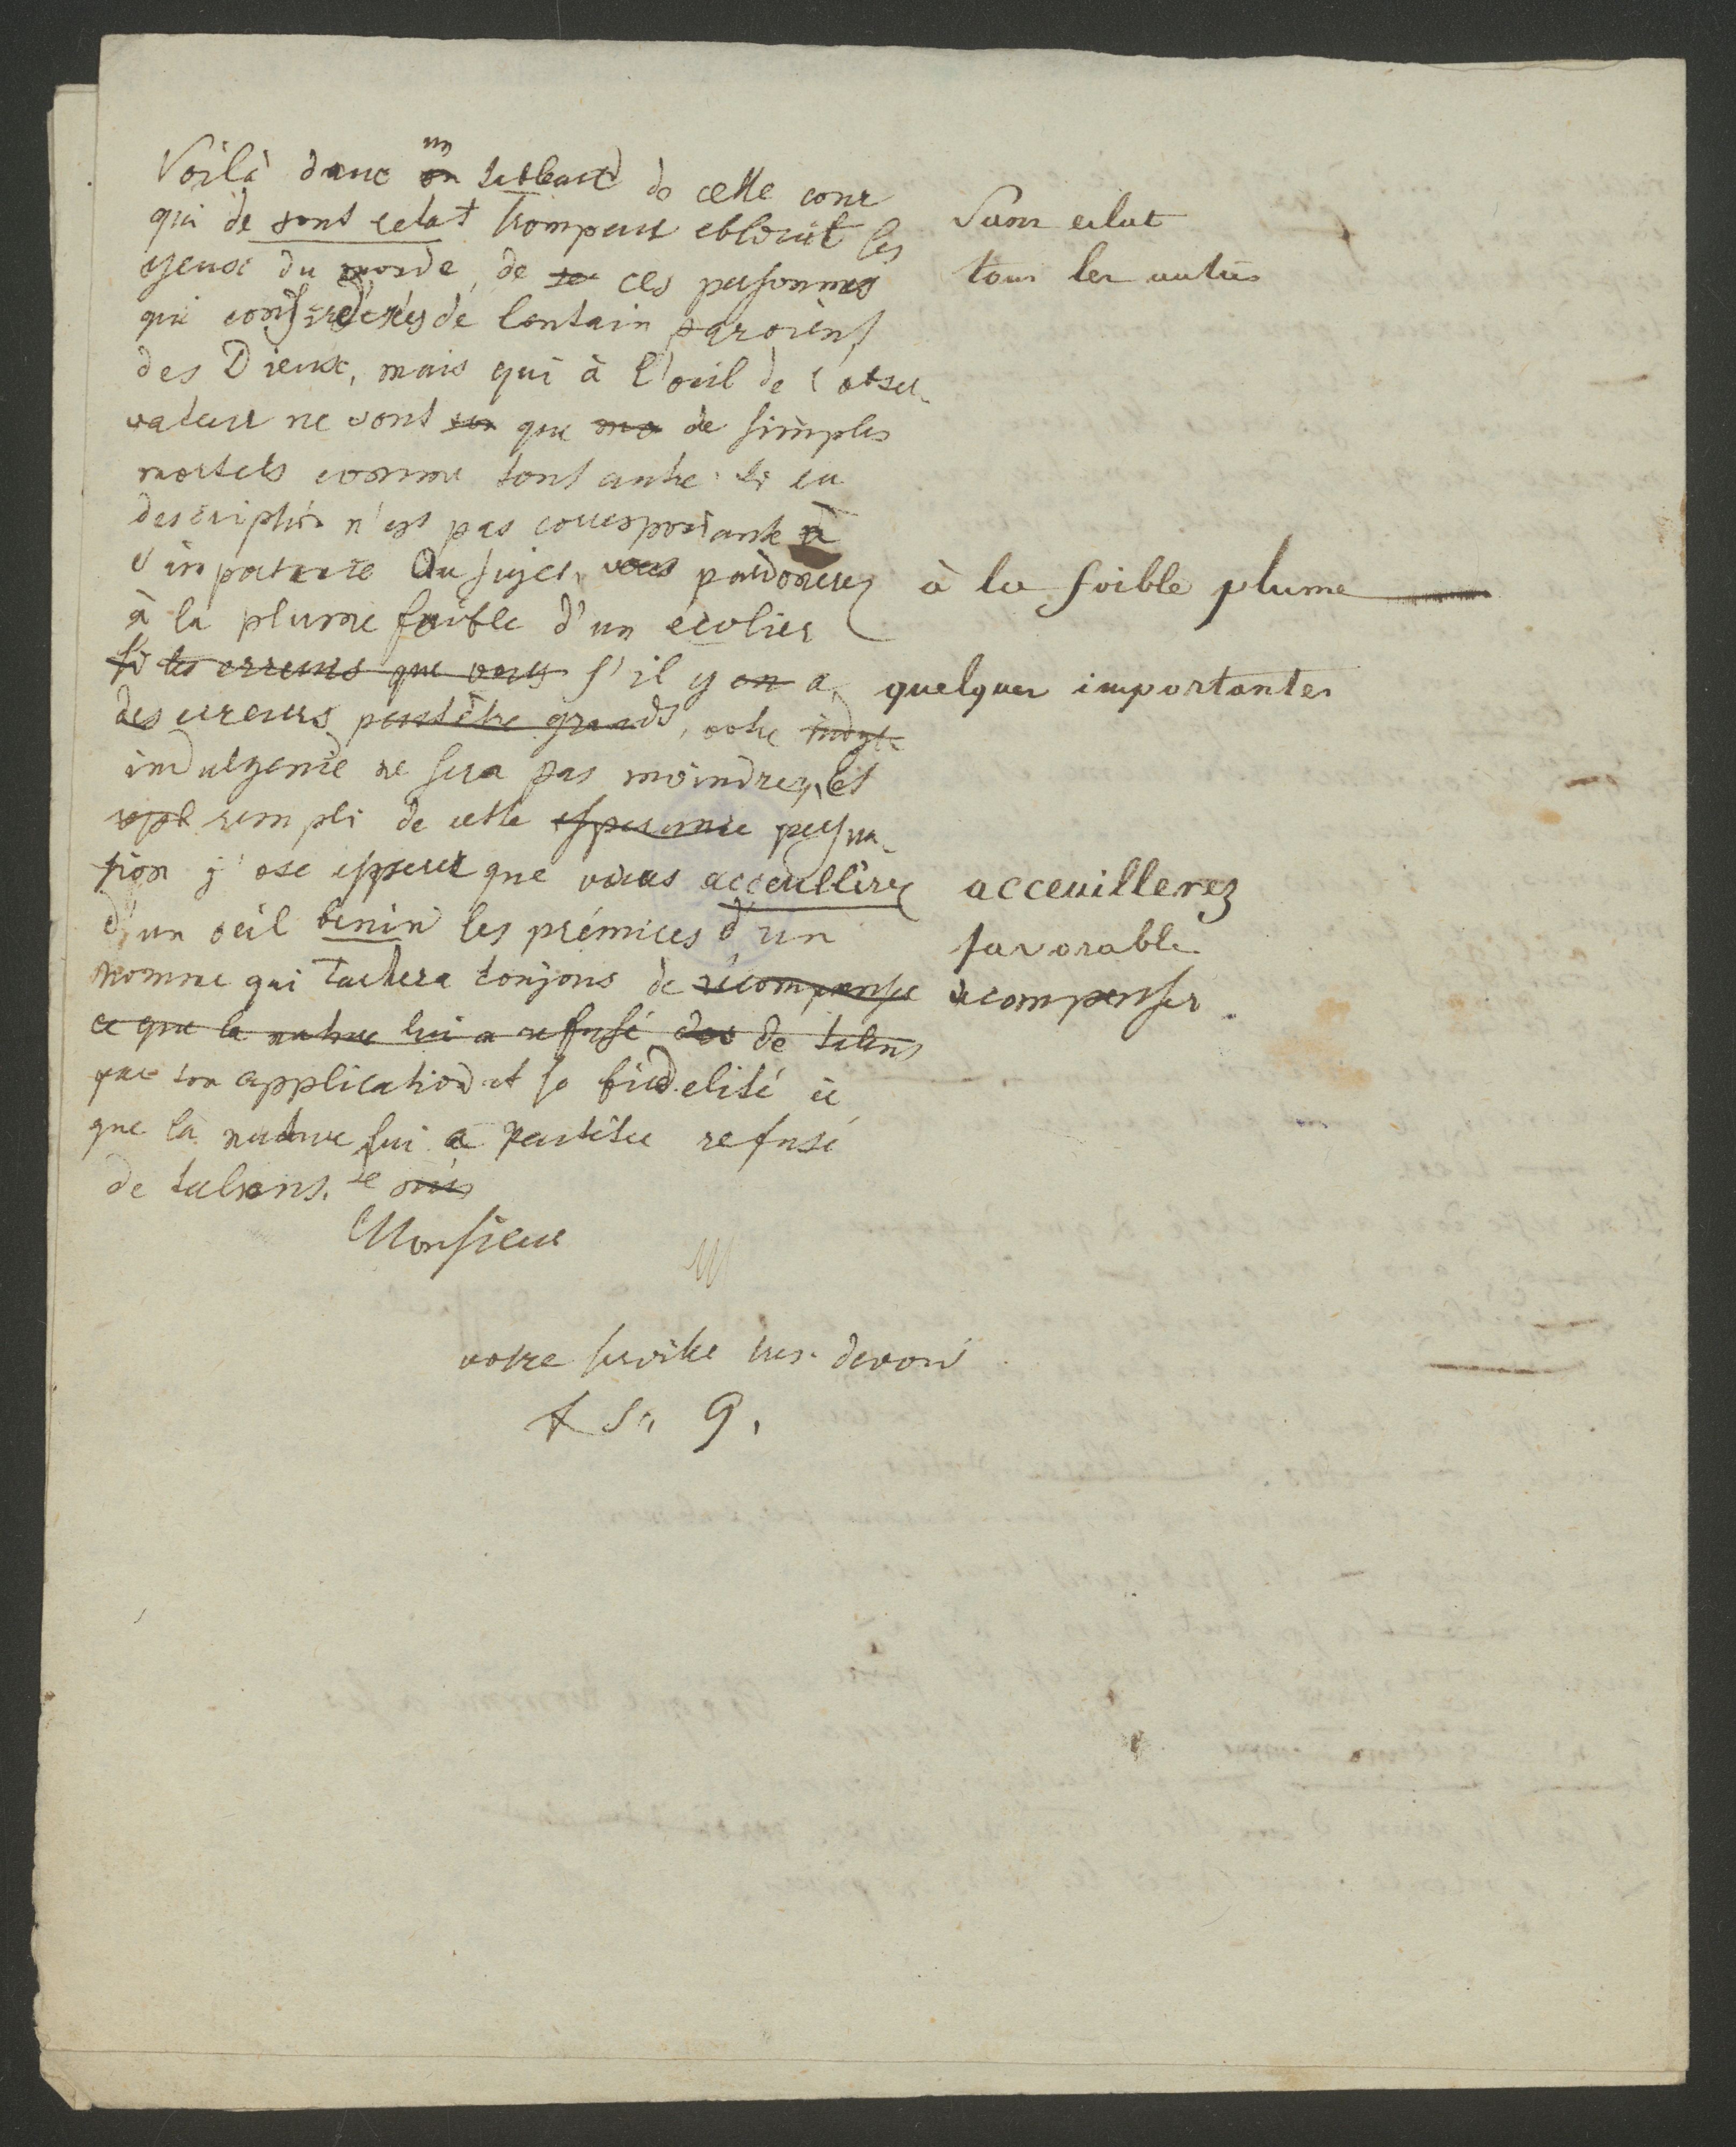 Voilà donc un tableau de cette cour
qui de sont eclat trompeur eblouit les
yeux du monde, de ces personnes
qui considerés de lontain paroient
des Dieux, mais qui à l'oeil de l'obser-
vateur ne sont que de simples
mortels comme tout autre. Si la
description n'est pas correspondante à
l'importance du sujet, vous pardonerez
à la plume faible d'un ecolier
si les erreurs que vous s'il y en a
des erreurs peutêtre grands, votre
indulgence ne sera pas moindre, et
rempli de cette esperance persua-
sion j'ose esperer que vous acceullirez
d'un oeil benin les prémices d'un
homme qui tachera toujours de récompenser
ce que la nature lui a refusé de talens
par son application et sa fidelité ce
que la nature lui a peutêtre refusé
de talents. Je suis
Monsieur
votre servite tres devoué
Sans eclat
tous les autres
à la foible plume
quelques importantes
acceuillerez
favorable
recompenser